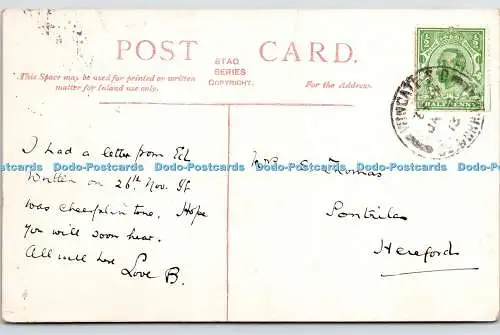 POST CARD.
STAO
SERIES
COPYRIGHT.
This Space may be used for printed or written
matter for Inland use only.
For the Address.
HALFPENNY
I had a letter from
Written on 26th Nov. It
was cheerful in tone. Hope
you will soon hear.
All well here
Love B.
Mrs S. Thomas
Pontrilas
Hereford
Dodo-Postcards Dodo-Postcards Dodo-Postcards Dodo-Postcards